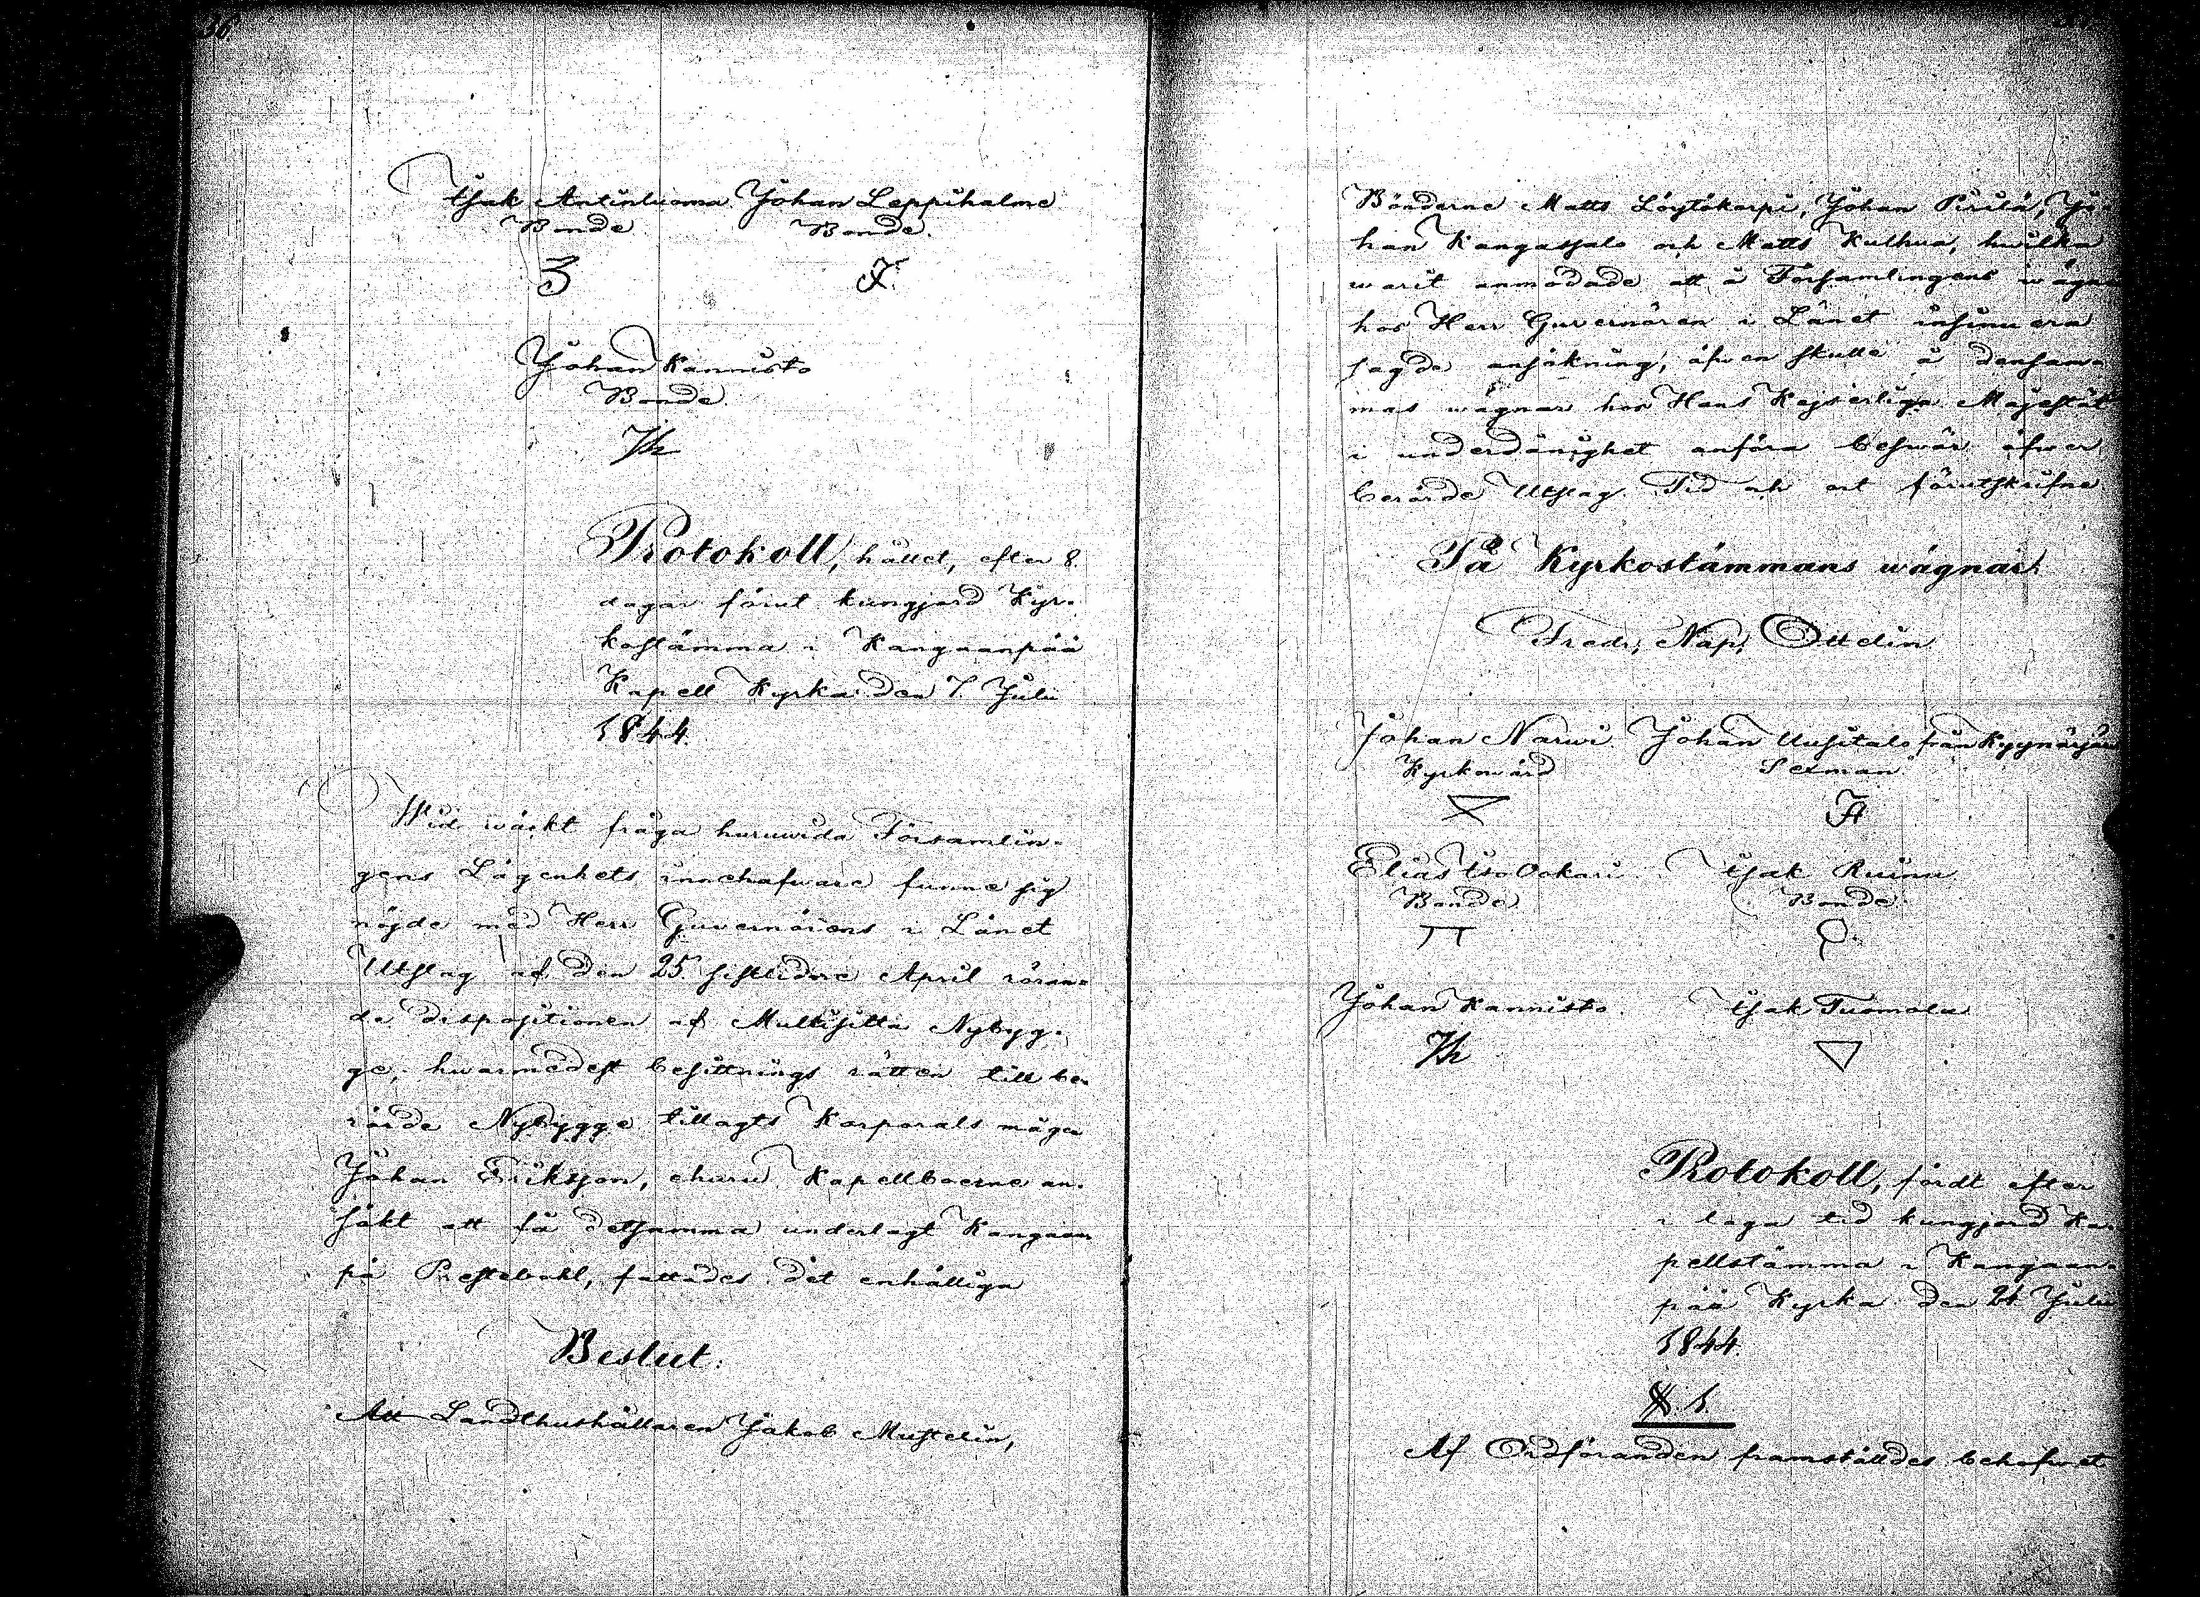 36.
Isak Antinluoma Johan Leppihalme
Bonde. Bonde.
Johan Kannisto
Bonde.
Protokoll, hållet, efter 8.
dagar förut kungjord Kyr-
kostämma i Kangaanpää
Kapell Kyrka den 7. Juli
1844.
Wid wäckt fråga huruwida Församlin-
gens Lägenhets innehafware funne sig
nöjde med Herr Guvernörens i Länet
Utslag af den 25 sistlidne April röran-
de dispositionen af Multisilta Nybyg-
ge, hwarmedelst besittnings rätten till be-
rörde Nybygge tillagts Korporals mågen
Johan Eriksson, ehuru Kapellboerne an-
sökt att få detsamma underlagt Kangaan-
pä Prestebohl, fattades det enhälliga
Beslut:
Att Landthushållaren Jakob Mustelin,
Bönderne Matts Löytökorpi, Johan Pirilä, Jo-
han Kangassalo och Matts Kulhua, hwilka
warit anmodade att å Församlingens wägnar
hos Herr Guvernören i Länet insinuera
sagde ansökning, äfwen skulle å densam-
mas wägnar hos Hans Kejserliga Majestät
i underdånighet anföra beswär öfwer
berörde Utslag. Tid och ort förutskrifne.
På Kyrkostämmans wägnar:
Fredr, Nap, Ottelin
Johan Narwi. Johan Uusitalo från Kyynärjärwi
Kyrkowärd Sexman
Elias Iso Ookari. Isak Ruinu
Bonde. Bonde.
Johan Kannisto. Isak Tuomola
Protokoll, fördt efter
i laga tid kungjord Ka-
pellstämma i Kangaan-
pää Kyrka den 21 Juli
1844.
§. 1.
Af Ordföranden framställdes behofwet